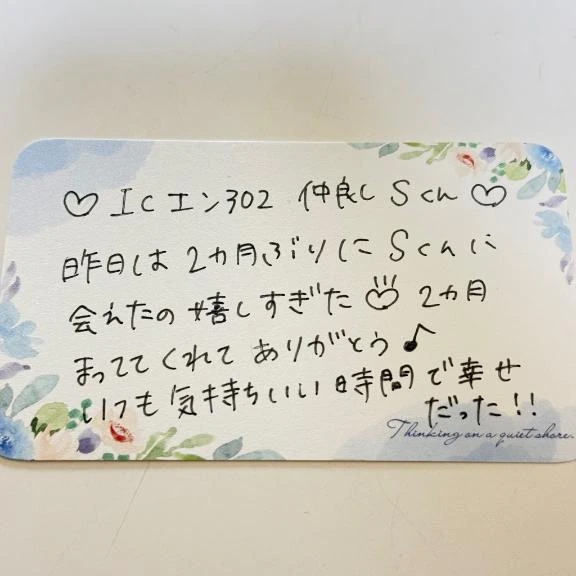 ♡ ICエン302 仲良しSくん♡
昨日は2カ月ぶりにSくんに
会えたの嬉しすぎた♡ 2カ月
まっててくれてありがとう♪
いつも気持ちいい時間で幸せ
だった!!
Thinking on a quiet shore.